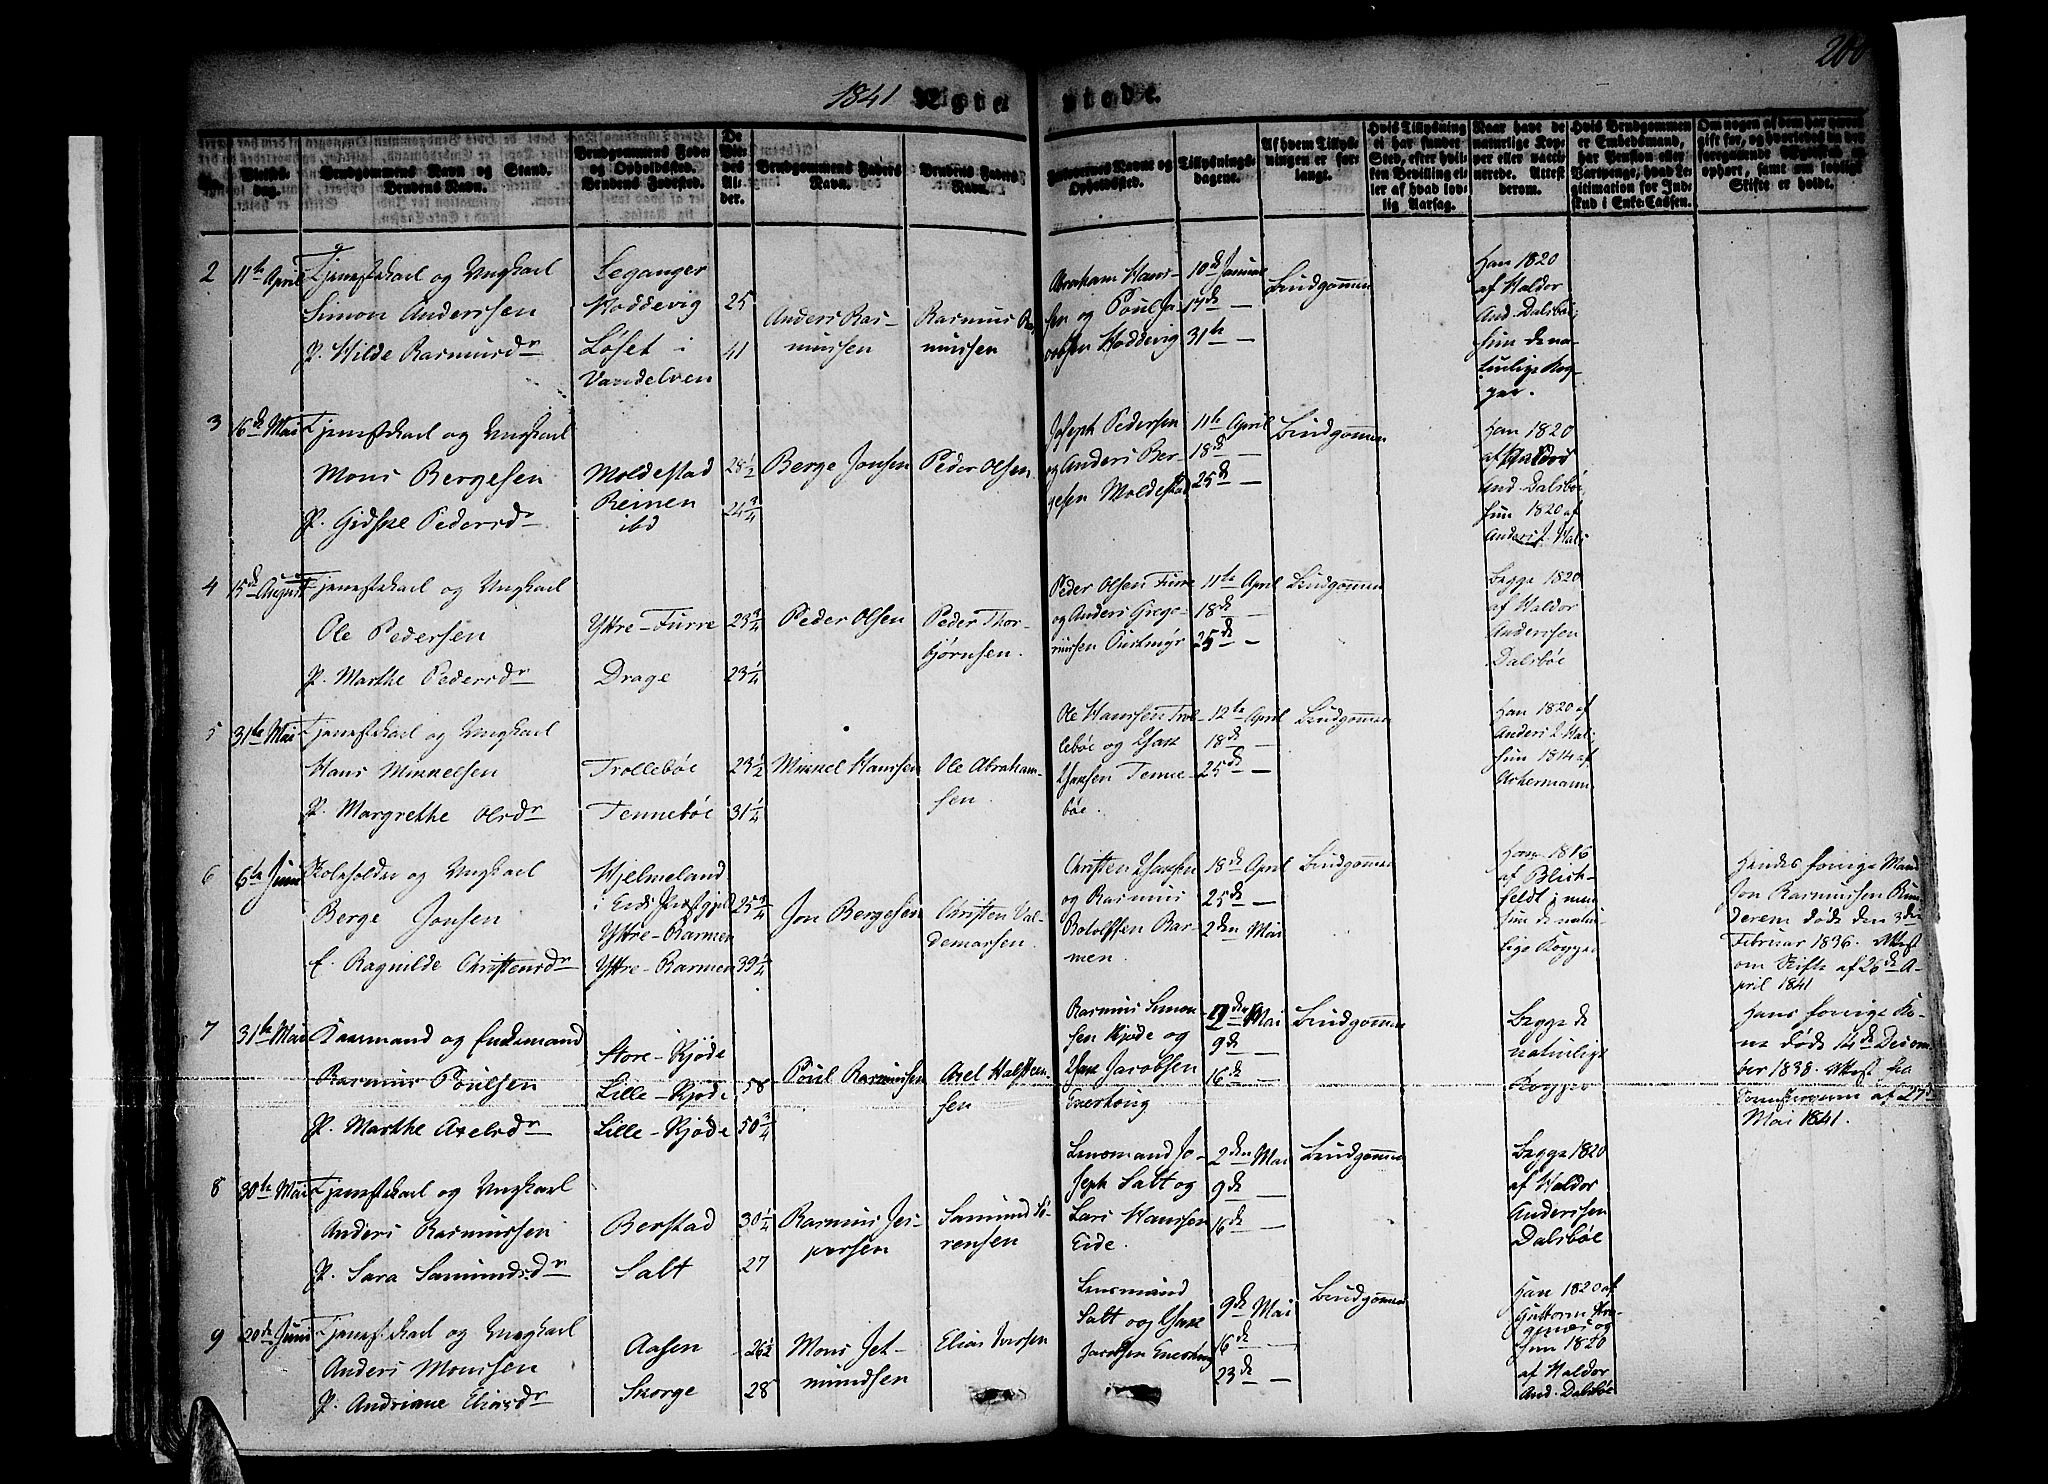 1841 Ægte viede.
200
No.
Vielses-
dag.
Brudgommens Navn og Stand.
Brudens Navn.
Brudgommens Føde-
og Opholdssted.
Brudens Fødested.
De
Vie-
des
Al-
der.
Brudgommens Faders
Navn.
Brudens Faders
Navn.
Forlovernes Navne og
Opholdssted.
Tillysnings-
dagene.
Af hvem Tillys-
ningen er for-
langt.
Hvis Tillysning
ei har fundet
Sted, efter hvil-
ken Bevilling el-
ler af hvad lov-
lig Aarsag.
Naar have de
naturlige Kop-
per eller vacci-
nerede. Attest
derom.
Hvis Brudgommen
er Embedsmand,
har Pension eller
Vartpenge, hvad Le-
gitimation for Ind-
skud i Enke-Cassen.
Om nogen af dem har været
gift før, og hvorledes da det
foregaaende Ægteskab er
ophørt, samt om lovligt
Skifte er holdt.
2
11te April
Tjenestekarl og Ungkarl
Simon Anderssen
P. Hilde Rasmusdr
Leganger
Hoddevig
Løset i
Vandelven
25
41
Anders Ras-
mussen
Rasmus Ras-
mussen
Abraham Hans-
sen og Poul Ja-
cobsen Hoddevig
10de Januar
17de —
31te —
Brudgommen
Han 1820
af Haldor
And. Dalsbøe,
hun de na-
turlige Kop-
per.
3
16de Mai
Tjenestekarl og Ungkarl
Mons Bergesen
P. Gidske Pedersdr
Moldestad
Reinen
ibd
28½
24¾
Berge Jonsen
Peder Olsen
Joseph Pedersen
og Anders Ber-
gesen Moldestad
11te April
18de —
25de —
Brudgommen
Han 1820
af Haldor
And. Dalsbøe,
hun 1820 af
Anders J. Hals
4
15de August
Tjenestekarl og Ungkarl
Ole Pedersen
P. Marthe Pedersdr
Yttre-Furre
Drage
23¾
23¼
Peder Olsen
Peder Thor-
bjørnsen.
Peder Olsen Furre
og Anders Grege-
riussen
11te April
18de —
25de —
Brudgommen
Begge 1820
af Haldor
Anderssen
Dalsbøe
5
31te Mai
Tjenestekarl og Ungkarl
Hans Mikkelsen
P. Margrethe Olsdr
Trollebøe
Tennebøe
23½
31¼
Mikkel Hanssen
Ole Abraham-
sen.
Ole Hanssen Trol-
lebøe og Isak
Isaksen Tenne-
bøe.
12te April
18de —
25de —
Brudgommen
Han 1820 af
Anders J. Hals
hun 1814 af
Ackermann
6
6te Juni
og Ungkarl
Berge Jonsen
E. Ragnilde Christensdr
Hjelmeland
i Eids Præstegjeld
Yttre-Barmen
Yttre-Barmen
25¾
39¼
Jon Bergesen
Christen Val-
demarsen.
Christen Isaksen
og Rasmus
Rolvssen Bar-
men.
18de April
25de —
2den Mai
Brudgommen
Han 1816
af Blich-
feldt, men
hun de natur-
lige Kopper
Hendes forrige Mand
Jon Rasmussen Run-
derem døde den 3de
Februar 1836. Attest
om Skifte af 26de A-
pril 1841
7
31te Mai
Gaarmand og Enkemand
Rasmus Poulsen
P. Marthe Axelsdr
Store-Skjøde
Lille-Skjøde
Lille-Skjøde
58
50¾
Poul Rasmussen
Axel Halsten-
sen
Rasmus Simon-
sen Skjøde og
Isak Jacobsen
Enerhoug
2den Mai
9de —
16de —
Brudgommen
Begge de
naturlige
Kopper
Hans forrige Ko-
ne døde 14de Decem-
ber 1838. Attest fra
af 27de
Mai 1841.
8
30te Mai
Tjenestekarl og Ungkarl
Anders Rasmussen
P. Sara Samundsdr
Berstad
Salt
30¼
27
Rasmus Jes-
persen
Samund Sø-
rensen
Lensmand Jo-
seph Salt og
Lars Hanssen
Eide.
2den Mai
9de —
16de —
Brudgommen
Begge 1820
af Haldor
Anderssen
Dalsbøe
9
20de Juni
Tjenestekarl og Ungkarl
Anders Monssen
P. Andriane Eliasdr
Aasen
Skorge
26½
28
Mons Jet-
mundsen
Elias Iversen
Lensmand
Salt og Isak
Jacobsen Enerhoug
9de Mai
16de —
23de —
Brudgommen
Han 1820 af
Guttorm
og
hun 1820
af Haldor
And. Dalsbøe